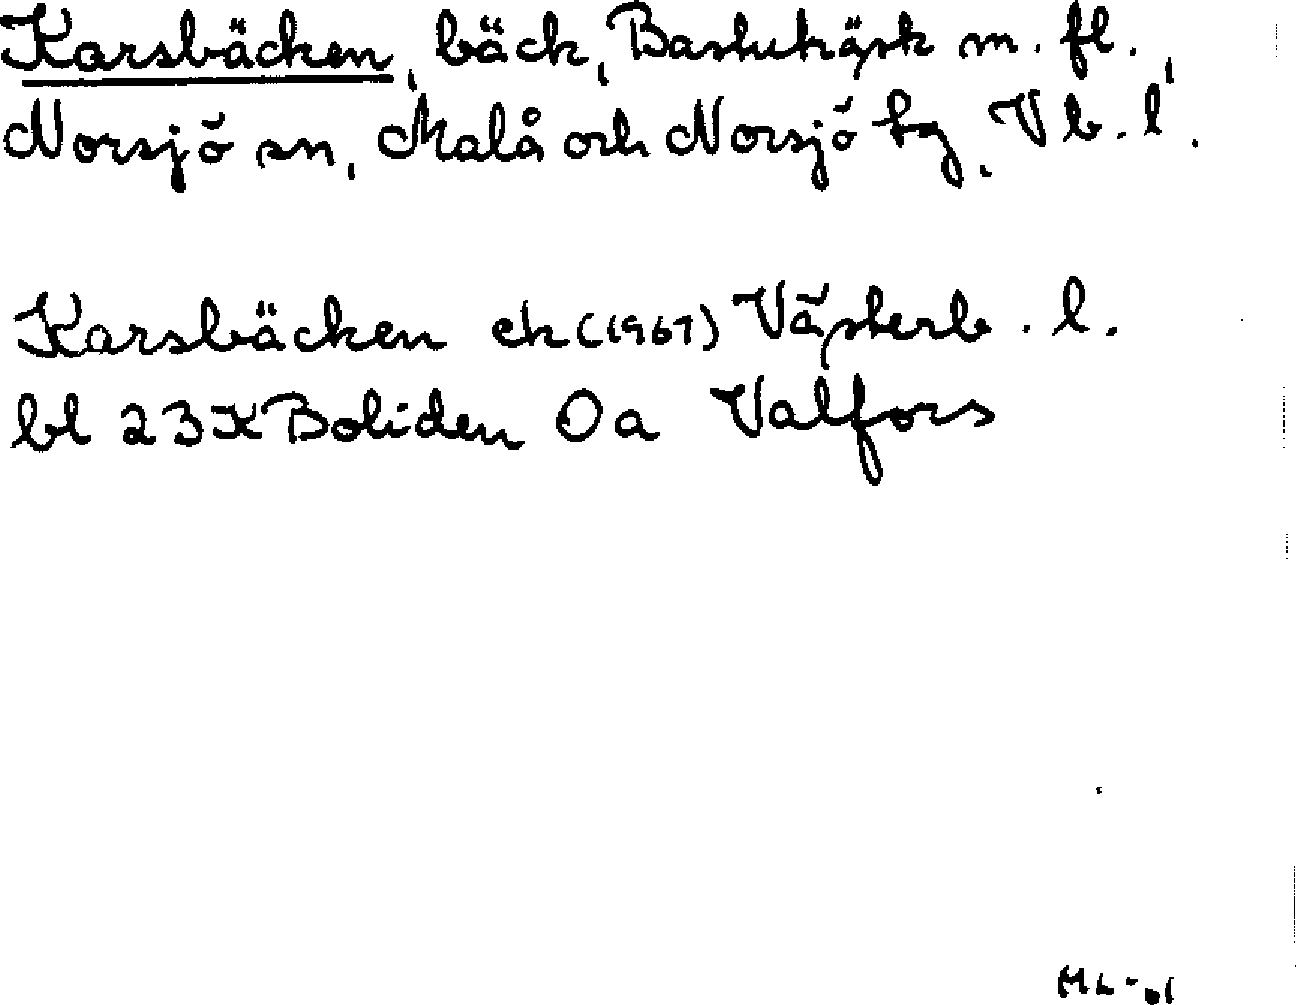 Karsbäcken, bäck, Bastuträsk m. fl.,
Norsjö sn, Malå och Norsjö tg, Vb. l.
Karsbäcken ek (1967) Västerb. l.
bl 23K Boliden 0a Valfors